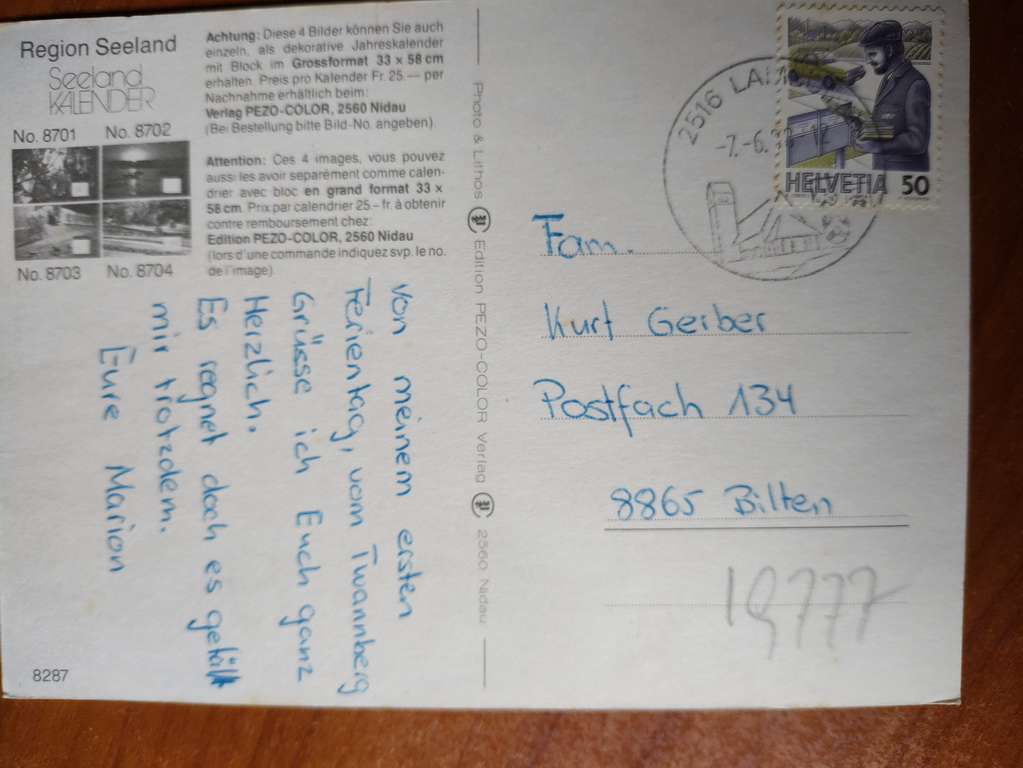 Region Seeland
Seeland
KALENDER
No. 8701 No. 8702
No. 8703 No. 8704
Achtung: Diese 4 Bilder können Sie auch
einzeln, als dekorative Jahreskalender
mit Block im Grossformat 33 x 58 cm
erhalten. Preis pro Kalender Fr. 25.— per
Nachnahme erhältlich beim:
Verlag PEZO-COLOR, 2560 Nidau
(Bei Bestellung bitte Bild-No. angeben).
Attention: Ces 4 images, vous pouvez
aussi les avoir separément comme calen-
drier avec bloc en grand format 33 x
58 cm. Prix par calendrier 25.- fr. à obtenir
contre remboursement chez:
Edition PEZO-COLOR, 2560 Nidau
(lors d'une commande indiquez svp. le no.
de l'image).
Von meinem ersten
Ferientag, vom Twannberg
Grüsse ich Euch ganz
Herzlich.
Es regnet doch es gefällt
mir trotzdem.
Eure Marion
8287
Photo & Lithos Edition PEZO-COLOR Verlag 2560 Nidau
2516
-7.-6.
HELVETIA 50
Fam.
Kurt Gerber
Postfach 134
8865 Bilten
19777